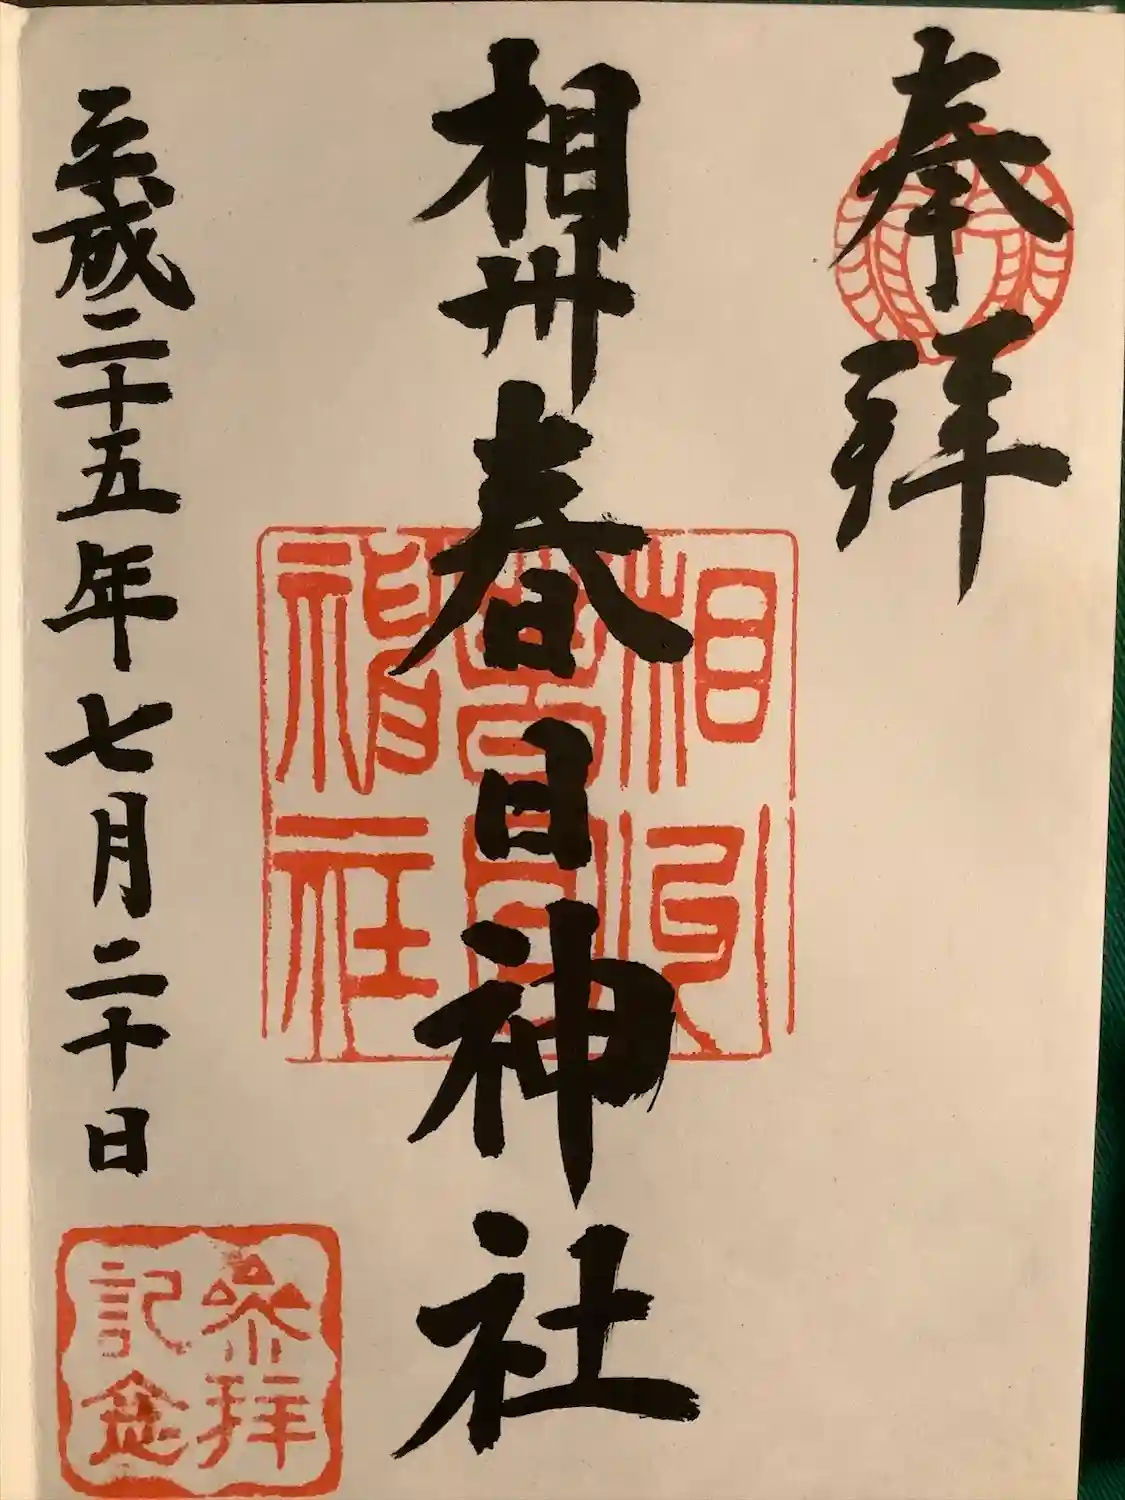 奉拝
相州春日神社
平成二十五年七月二十日
相州
春日
神社
参拝
記念